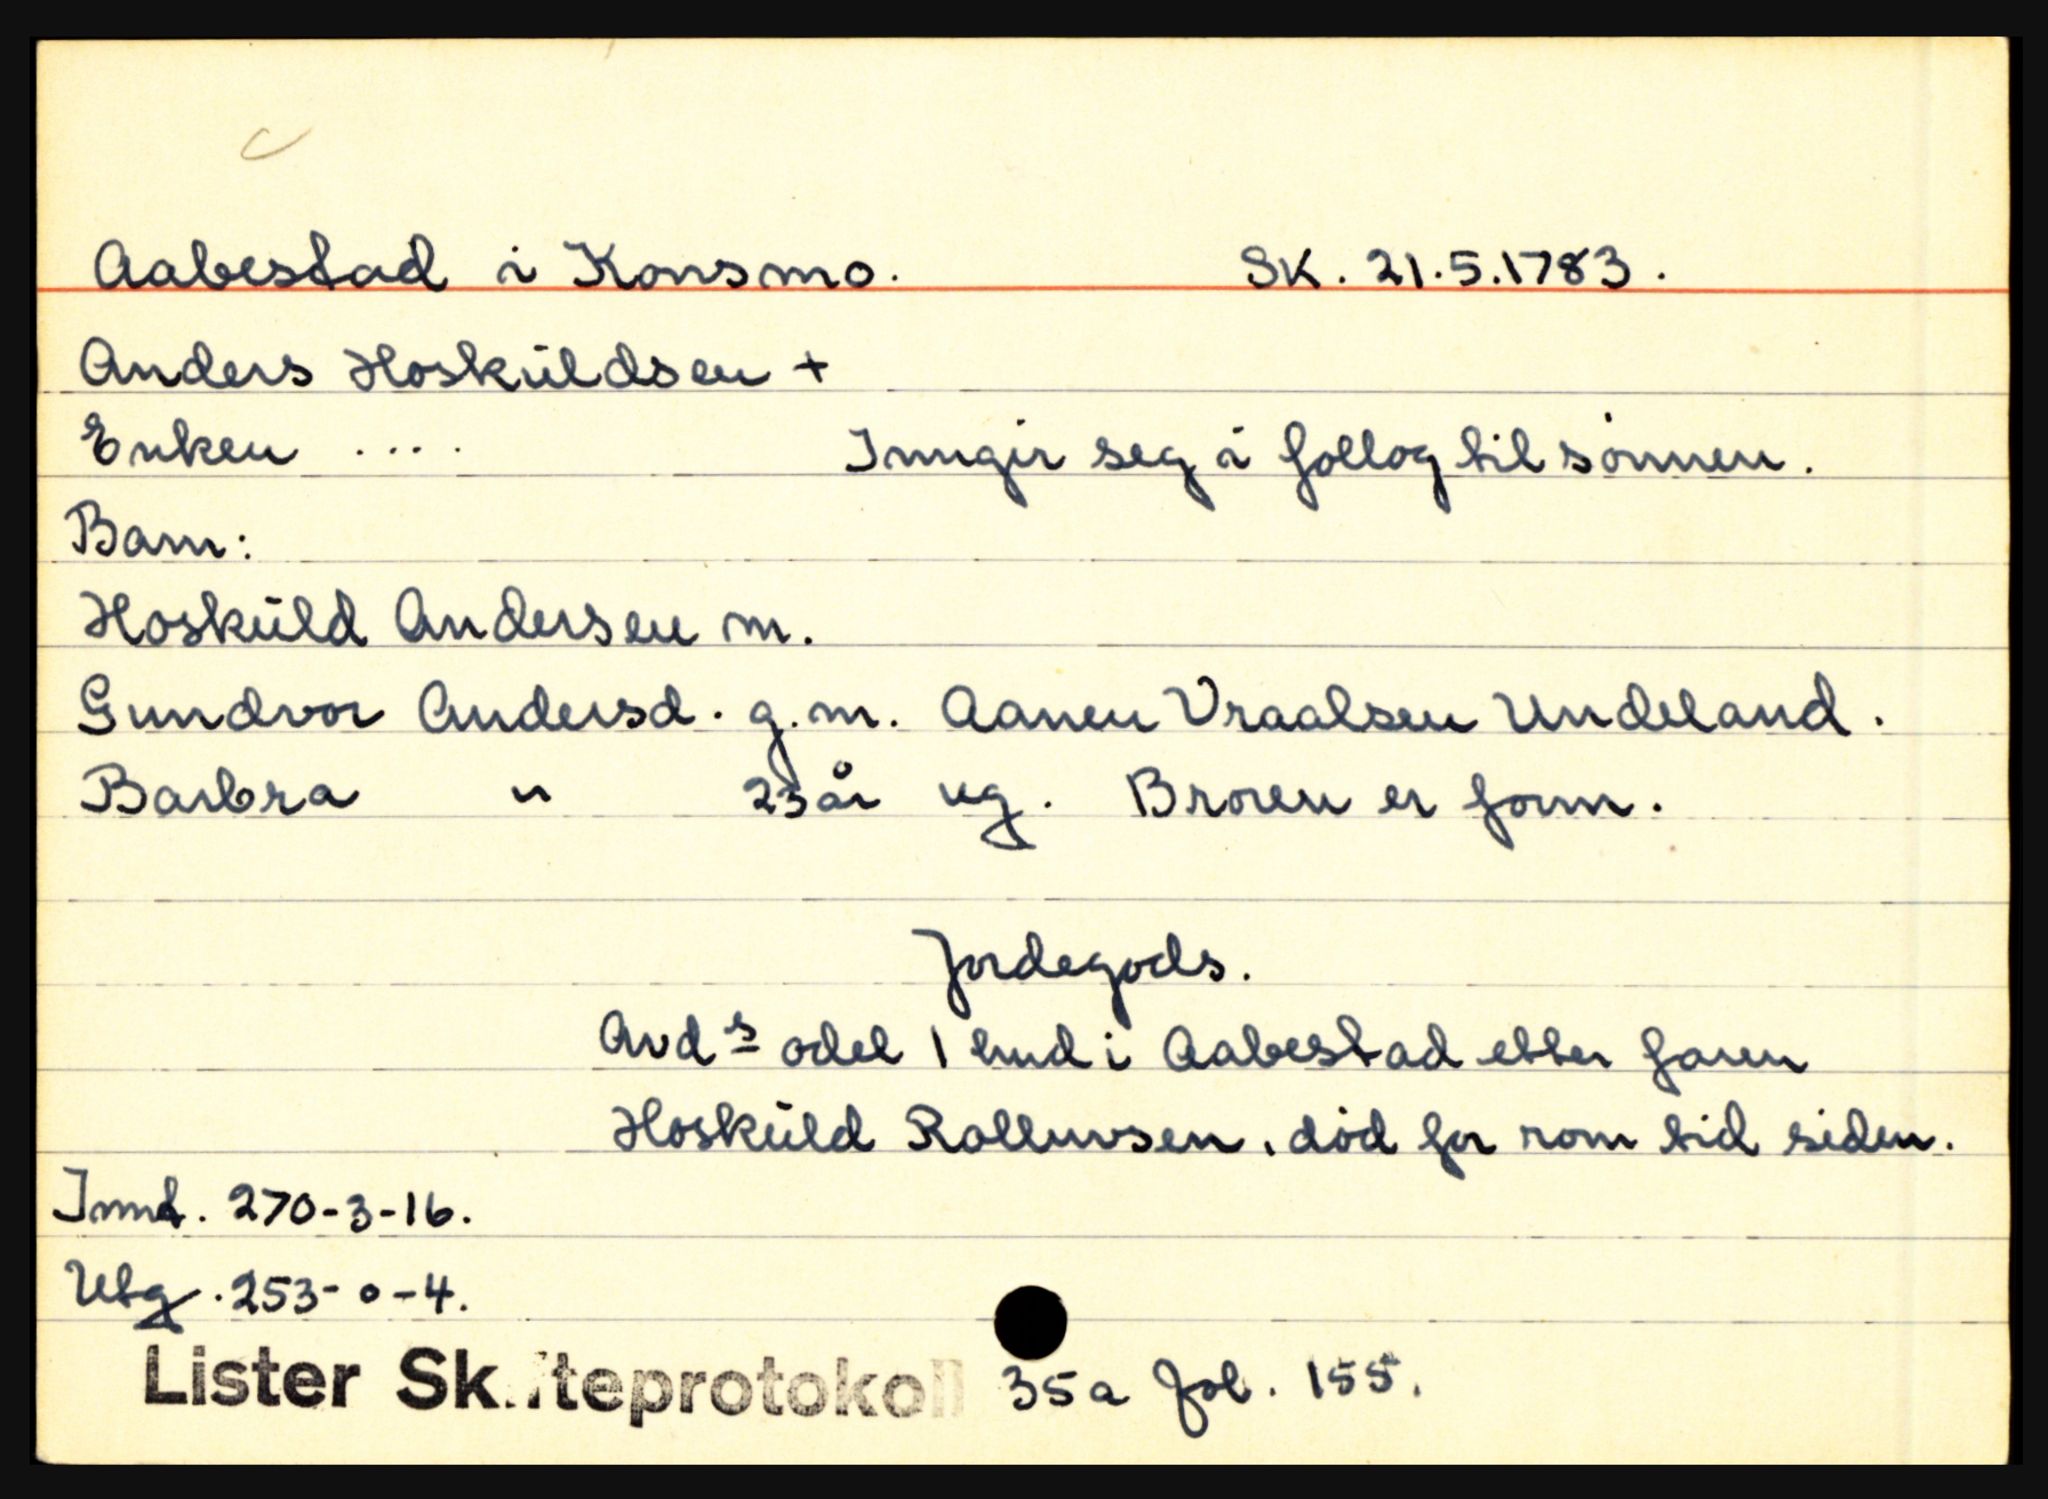 Aabestad i Konsmo. SK. 21.5.1783.
Anders Hoskŭldsen +
Enken .... Inngir seg i follog til sønnen.
Barn:
Hoskŭld Andersen m.
Gundvor Andersd. g.m. Aanen Vraalsen Undeland.
Barbra " 23 år ug. Broren er form.
Jordegods.
Avd s odel 1 hud i Aabestad etter faren
Hoskŭld Rolluvsen, død for rom tid siden.
Innt. 270-3-16.
Utg. 253-0-4.
Lister Skifteprotokoll 35a fol. 155.